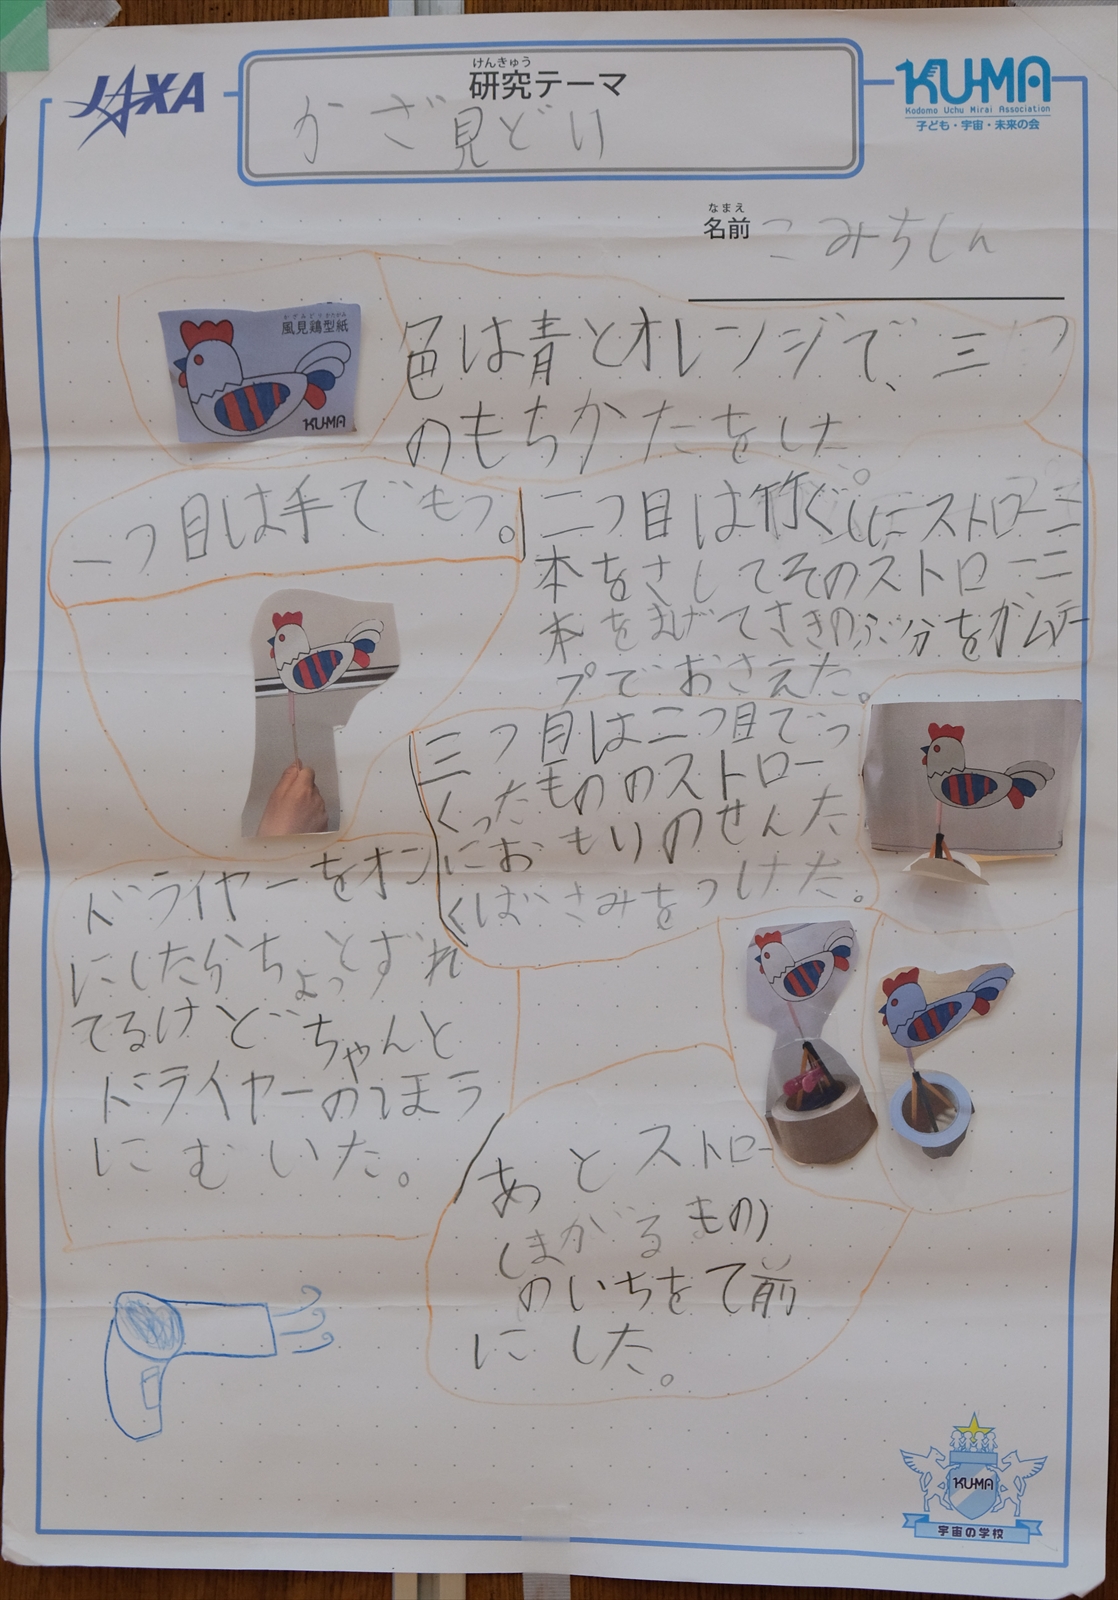 JAXA
けんきゅう
研究テーマ
かざ見どり
KU-MA
Kodomo Uchu Mirai Association
子ども・宇宙・未来の会
なまえ
名前
こみちしん
かざみどりかたがみ
風見鶏型紙
KU-MA
色は青とオレンジで、三つ
のもちかたをした。
一つ目は手でもつ。
二つ目は竹ぐしにストロー二
本をさしてそのストロー二
本をまげてさきのぶ分をガムテー
プでおさえた。
三つ目は二つ目でつ
くったもののストロー
におもりのせんた
くばさみをつけた。
ドライヤーをオン
にしたらちょっとずれ
てるけどちゃんと
ドライヤーのほう
にむいた。
あとストロー
(まがるもの)
のいちをて前
にした。
KU-MA
宇宙の学校